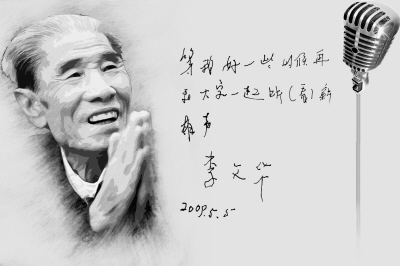 等我好一些以候再
大家一起听(看)新
相声
李文华
2009.5.5